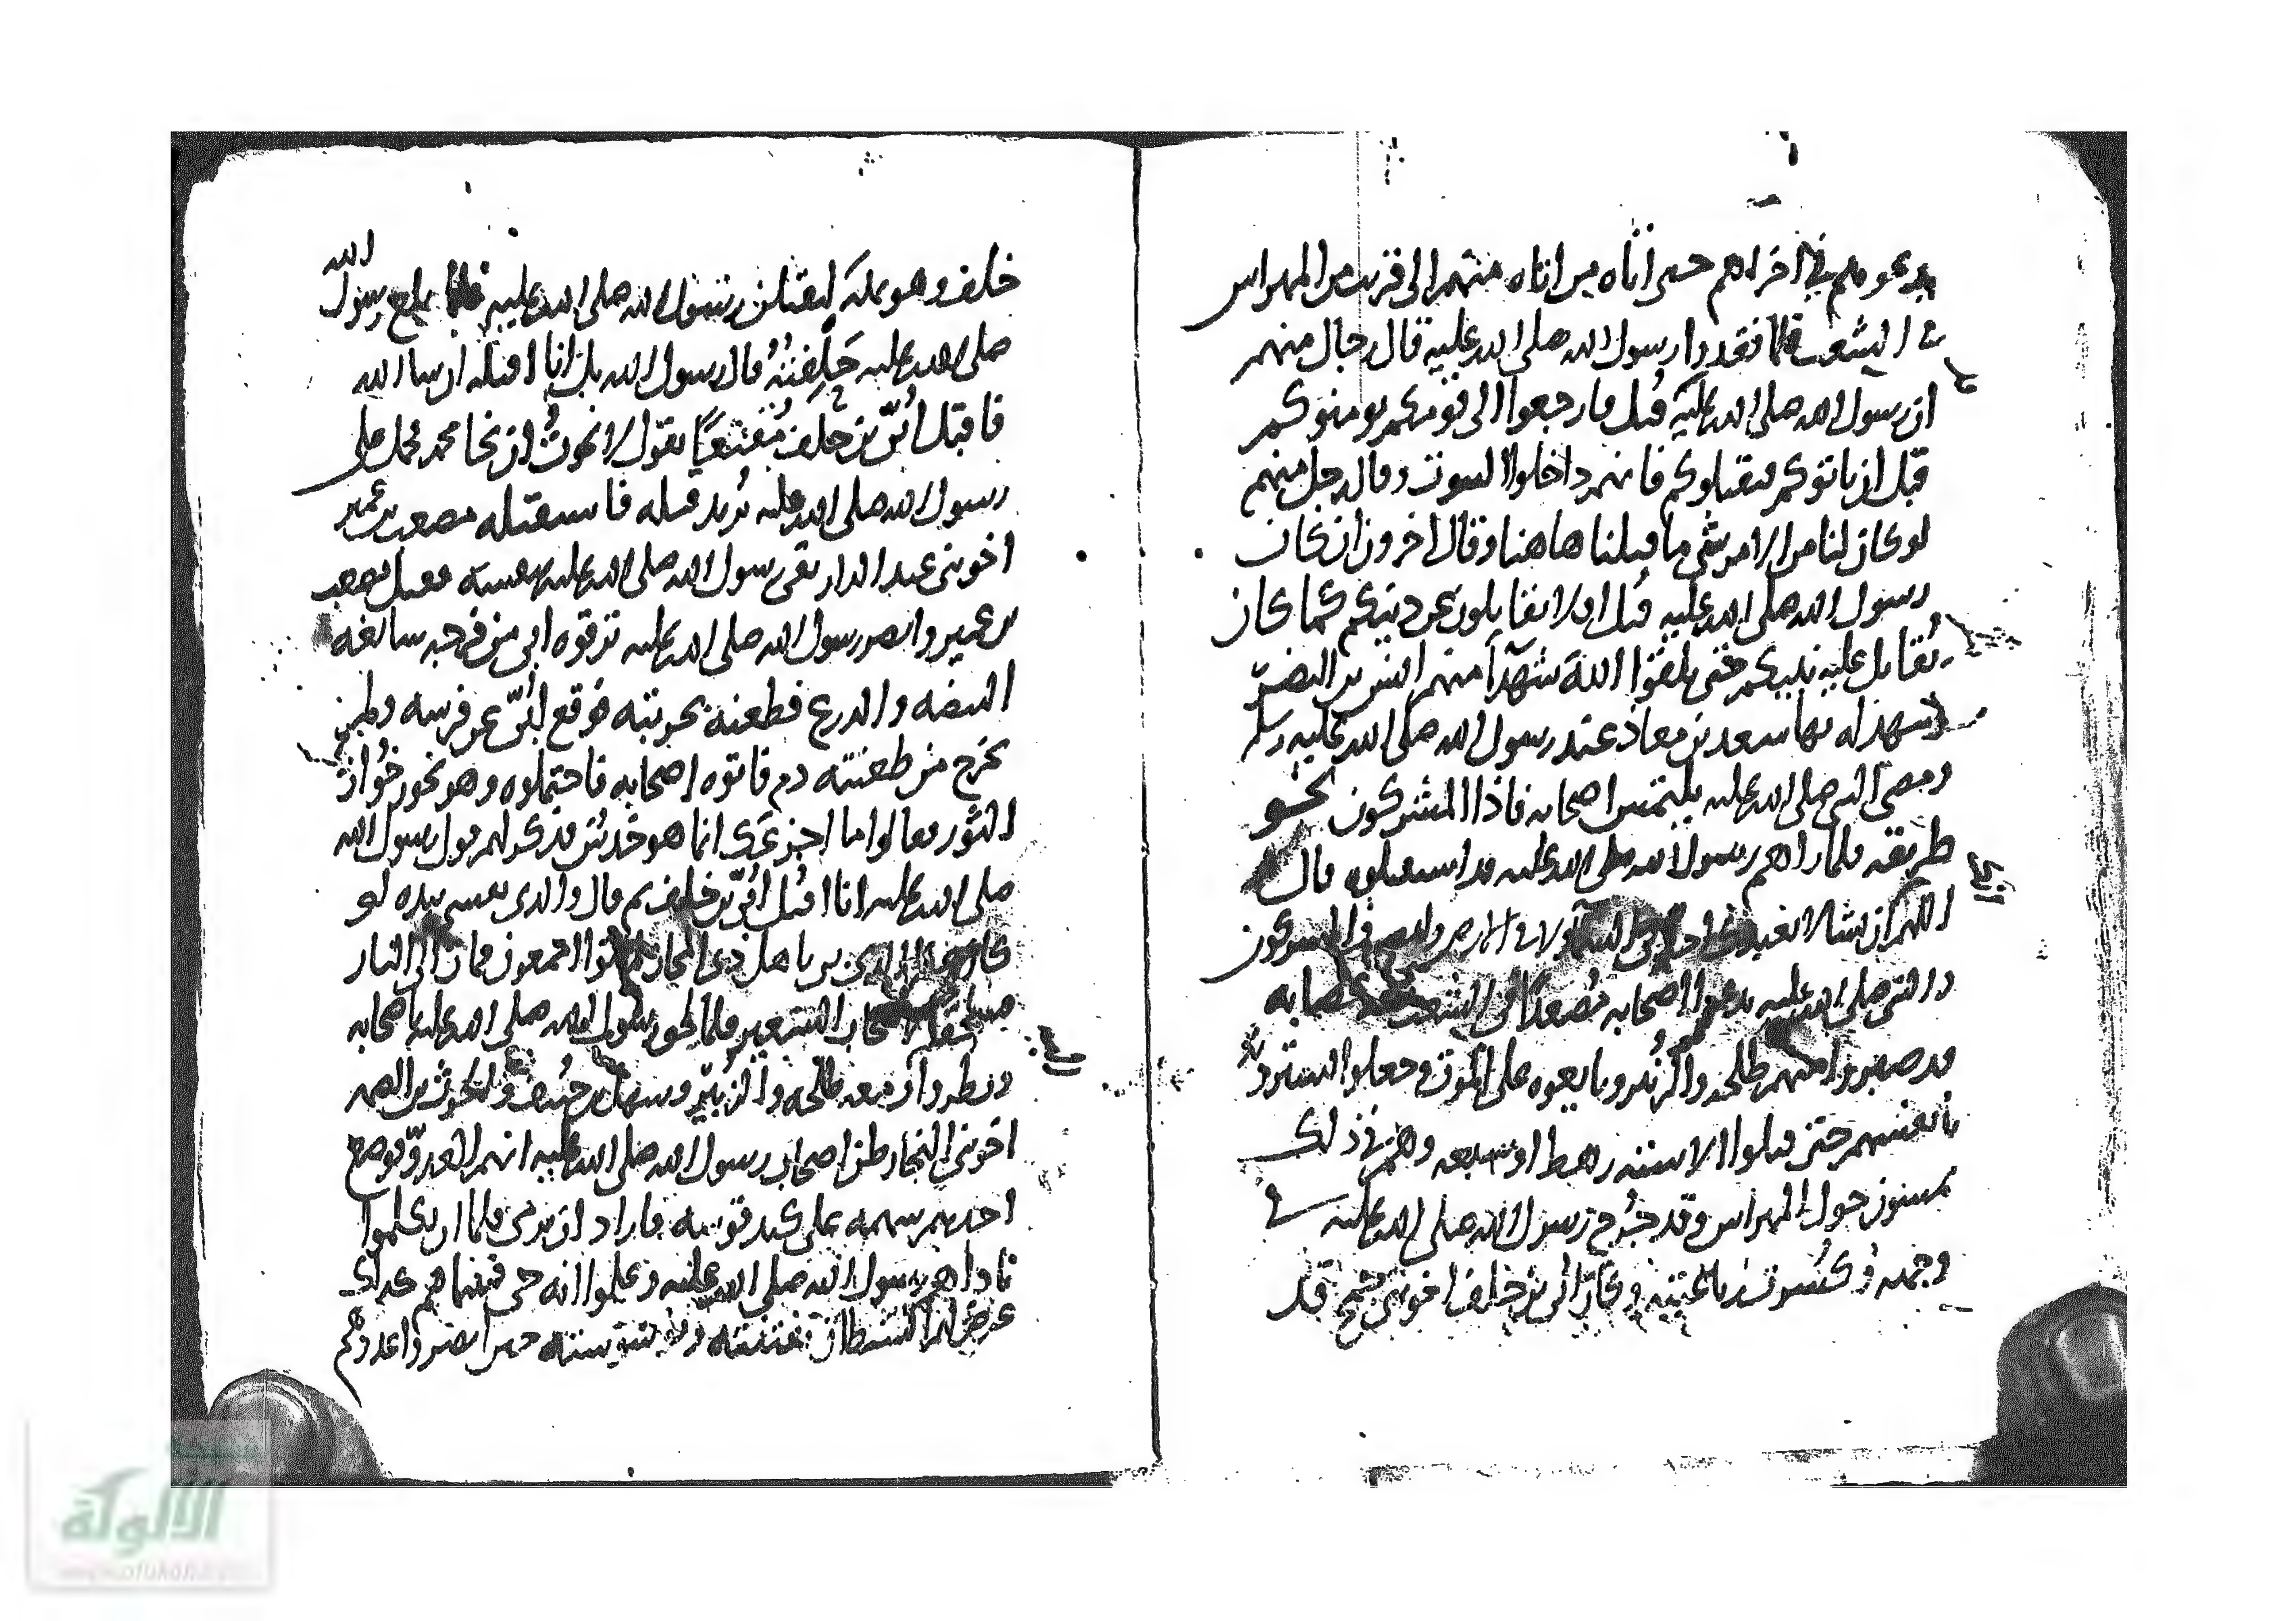 يدعوهم في اخراهم حتى اتاه من اتاه منهم الى قريب من المهراس
في الشعب فلما فقدوا رسول الله صلى الله عليه قال رجال منهم
ان رسول الله صلى الله عليه قتل فارجعوا الى قومكم يومنوكم
قبل ان ياتوكم فيقتلوكم فانهم داخلوا البيوت وقال رجل منهم
لو كان لنا من الامر شي ما قتلنا هاهنا وقال اخرون ان كان
رسول الله صلى الله عليه قتل افلا تقاتلون عن دينكم كما كان
يقاتل عليه نبيكم حتى تلقوا الله شهدا منهم انس بن النضر
شهد له بها سعد بن معاذ عند رسول الله صلى الله عليه وسلم
ومضى النبي صلى الله عليه يلتمس اصحابه فاذا المشركون نحو
طريقه فلما راهم رسول الله صلى الله عليه قد استقبلوه قال
اللهم ان تشا لا تعبد في الارض والمشركون
والنبي صلى الله عليه يدعوا اصحابه مصعدا في الشعب عصابه
قد صبروا معهم طلحه والزبير وبايعوه على الموت وجعلوا يسترونه
بانفسهم حتى قتلوا الا سته رهط او سبعه وهم في ذلك
يمشون حول المهراس وقد جرح رسول الله صلى الله عليه في
وجهه وكسرت رباعيته وكان ابي بن خلف اخو بني جمح قد
خلف وهو بمكه ليقتلن رسول الله صلى الله عليه فلما بلغ رسول الله
صلى الله عليه حلفته قال رسول الله بل انا اقتله ان شا الله
فاقبل ابي بن خلف مقنعا يقول لا نجوت ان نجا محمد فحمل على
رسول الله صلى الله عليه يريد قتله فاستقبله مصعب بن عمير
اخو بني عبد الدار يقي رسول الله صلى الله عليه بنفسه فقتل مصعب
بن عمير وابصر رسول الله صلى الله عليه ترقوه ابي من فرجه سابغه
البيضه والدرع فطعنه بحربته فوقع ابي عن فرسه ولم
يخرج من طعنته دم فاتوه اصحابه فاحتملوه وهو يخور خوار
الثور فقالوا ما اجزعك انما هو خدش فذكر لهم قول رسول الله
صلى الله عليه انا اقتل ابي بن خلف ثم قال والذي نفسي بيده لو
كان هذا الذي بي باهل ذي المجاز لماتوا اجمعون فمات الى النار
فسحقا لاصحاب السعير فلما لحق رسول الله صلى الله عليه باصحابه
ونظروا ومعه طلحه والزبير وسهل بن حنيف والحرث بن الصمه
اخو بني النجار ظن اصحاب رسول الله صلى الله عليه انهم العدو فوضع
احدهم سهمه على كبد قوسه فاراد ان يرمي فلما ان تكلموا
ناداهم رسول الله صلى الله عليه وعلموا انه حي فبينما هم كذلك
عرض لهم الشيطان بفتنته ووسوسته حين ابصروا عدوهم